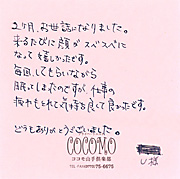 2ヶ月、お世話になりました。
来るたびに顔がスベスベに
なって嬉しかったです。
毎回、してもらいながら
眠ってしまったのですが、仕事の
疲れもとれて気持ち良くて良かったです。
どうもありがとうございました。
COCOMO
ココモ山手倶楽部
75-6675
U様